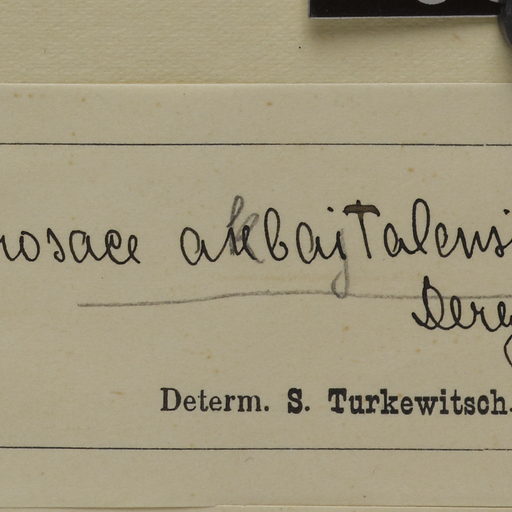 nosace akbajTalensi
Dere
Determ. S. Turkewitsch.